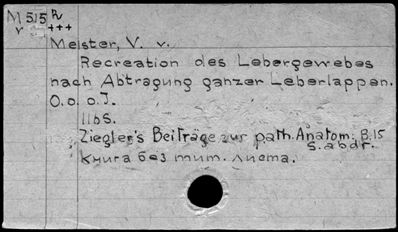 M 515 h
v +++
Meister, V. v.
Recreation des Lebergewebes
nach Abtragung ganzer Leberlappen.
O.o. o.J.
11bS.
Ziegler's Beiträge zur path. Anatom. B.15
S. abdr.
Книга без тит. листа.